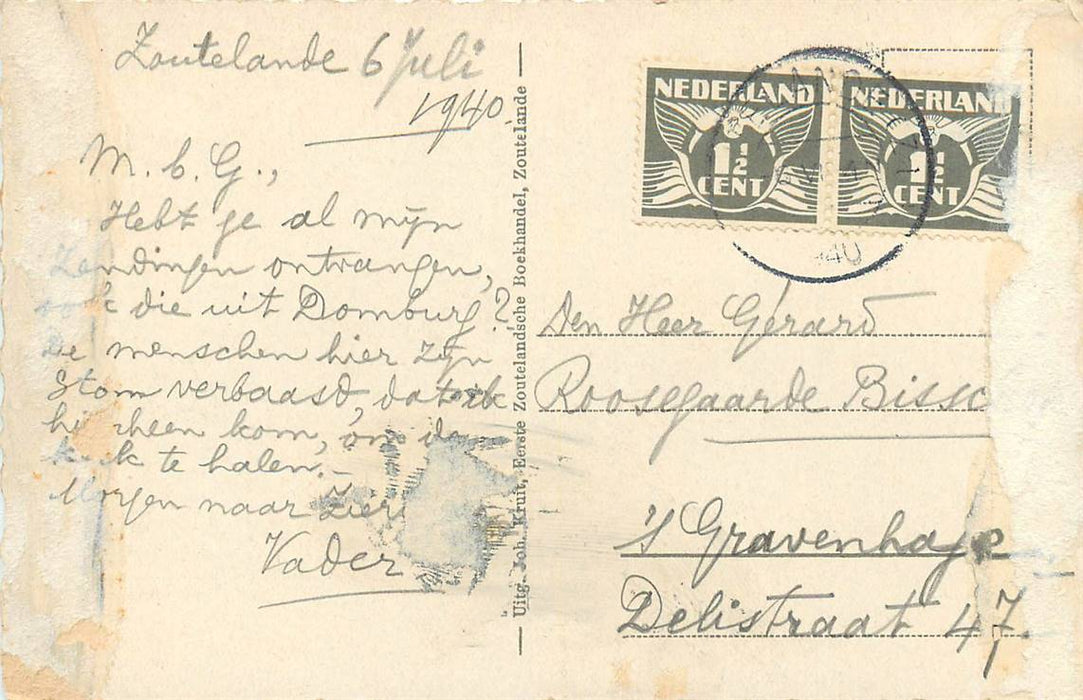 Zoutelande 6 Juli
1940
M. b. G.,
Hebt ge al mijn
Zendingen ontvangen,
ook die uit Domburg?
De menschen hier zijn
Stom verbaasd, dat ik
hierheen kom, om de
kerk te halen.
Morgen naar Zier
Vader
Uitg. Joh. Kruit, Eerste Zoutelandsche Boekhandel, Zoutelande
NEDERLAND
1½
CENT
NEDERLAND
1½
CENT
Den Heer Gérard
Roosegaarde Bissc
's Gravenhage
Delistraat 47.